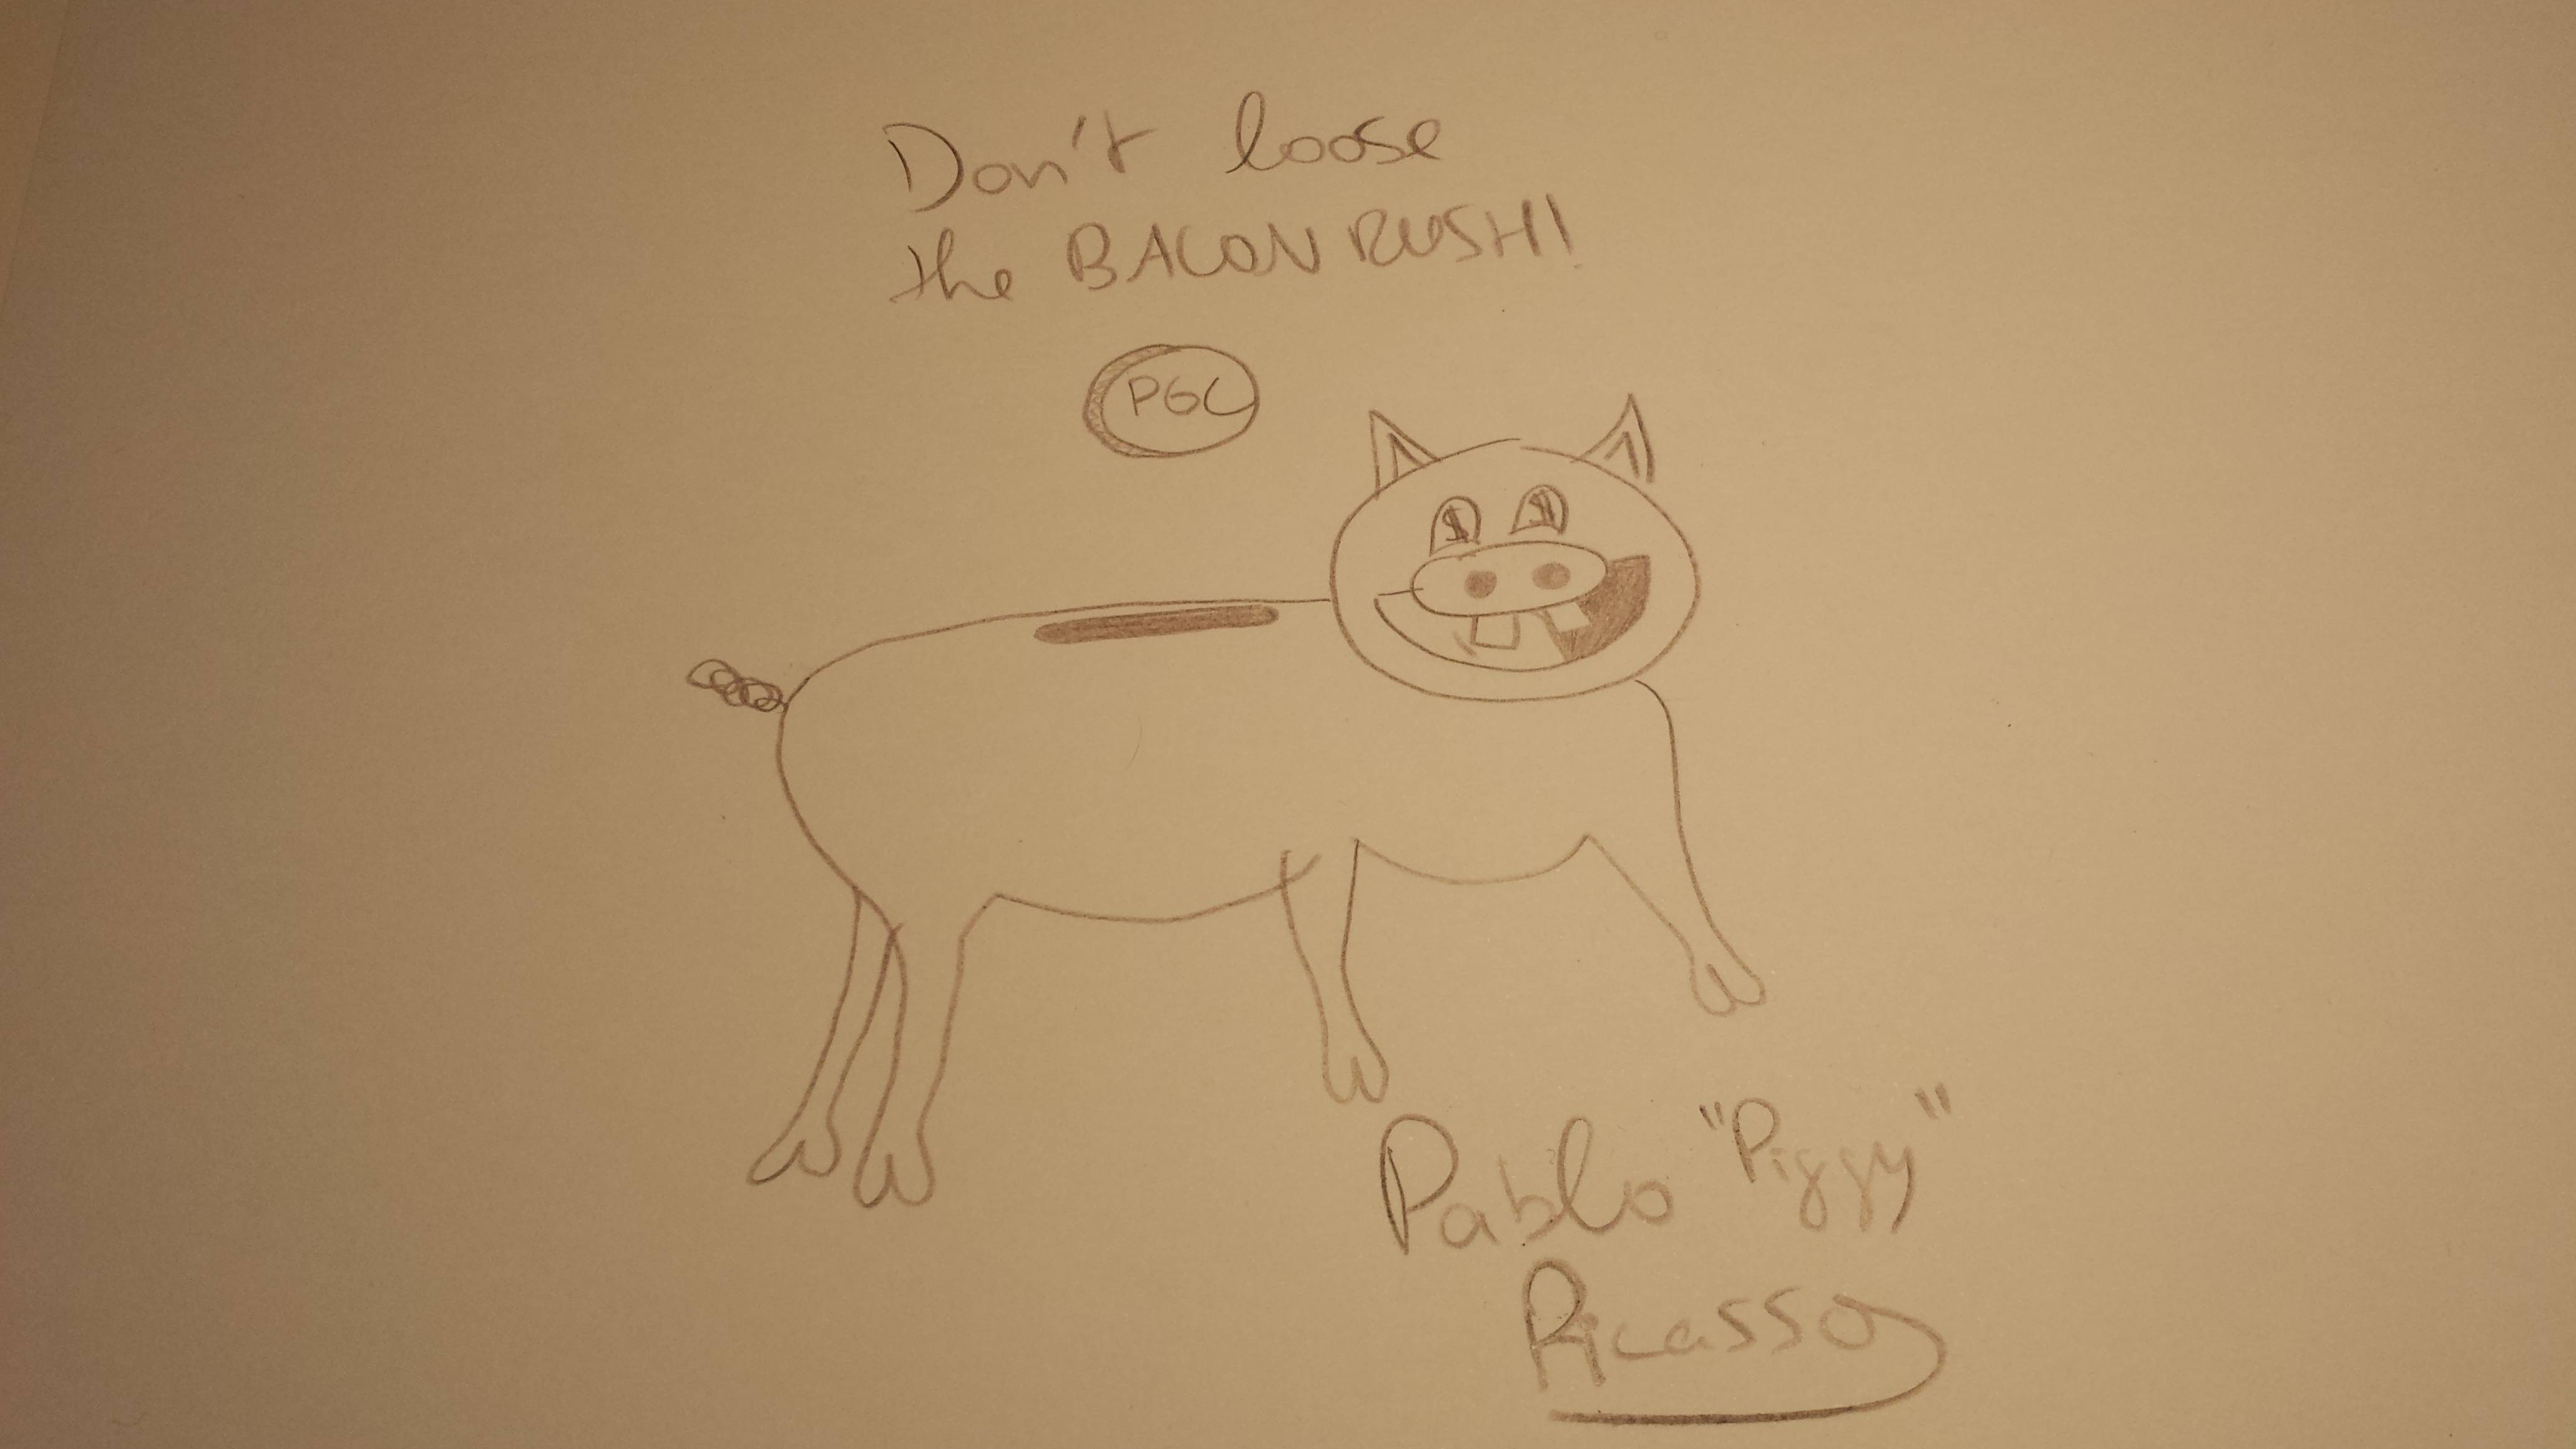 Don't loose
the BACON RUSH!
PGC
$ $
Pablo "Piggy"
Picasso